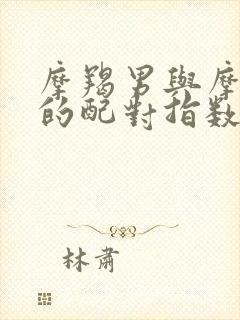 摩羯男與摩
的配對指数
林肅